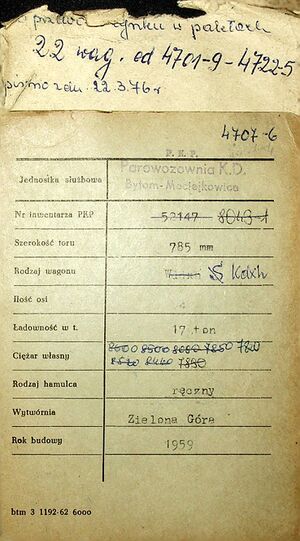 cynku w paletach
22 wag. od 4701-9 - 4722-5
pismo z dn. 22.3.76 r
4707-6
P. K. P.
Jednostka służbowa Parowozownia K.D.
Bytom-Maciejkowice
Nr inwentarza PKP 52147 8043-1
Szerokość toru 785 mm
Rodzaj wagonu Kdxh
Ilość osi 4
Ładowność w t. 17 ton
Ciężar własny 8600 8500 8050 7850 7800
8520 8440 7890
Rodzaj hamulca ręczny
Wytwórnia Zielona Góra
Rok budowy 1959
btm 3 1192-62 6000